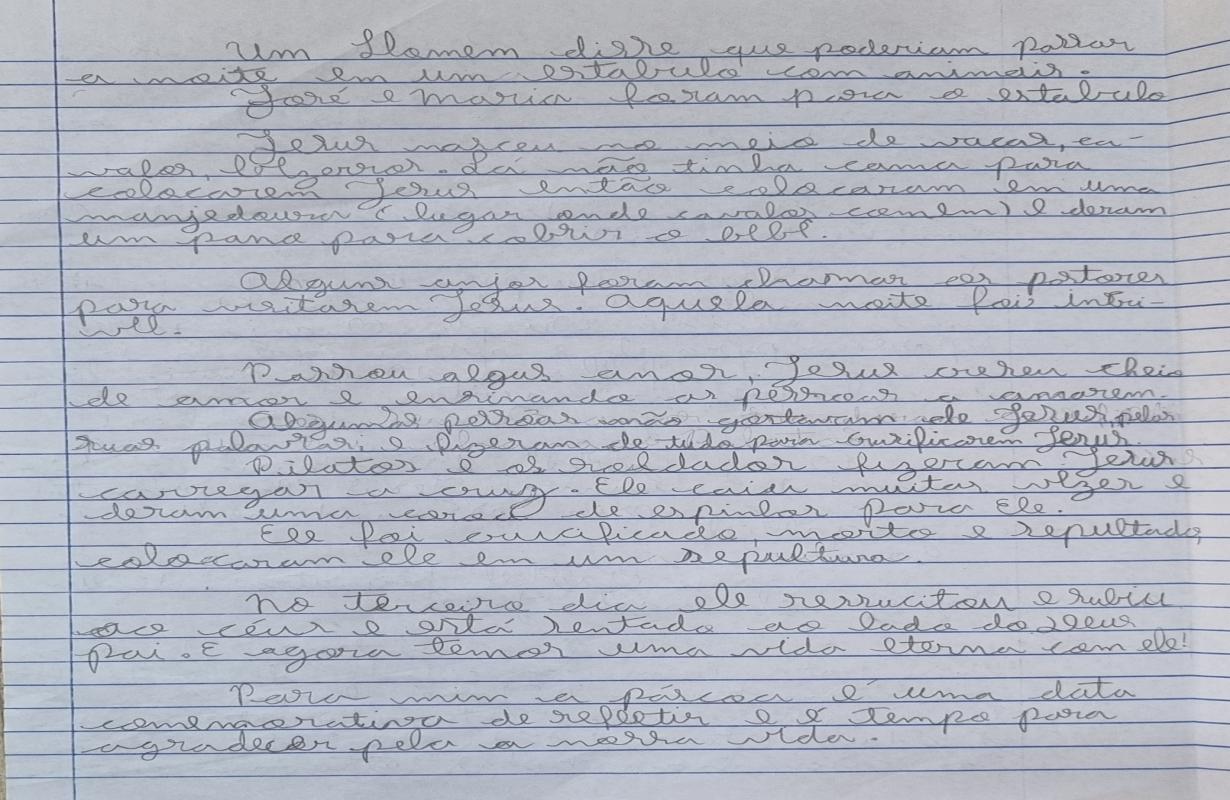 Um Homem disse que poderiam passar
a noite em um estabulo com animais.
José e Maria foram para o estabulo
Jesus nasceu no meio de vacas, ca-
valos, bezerros. Lá não tinha cama para
colocarem Jesus então colocaram em uma
manjedoura (lugar onde cavalos comem) e deram
um pano para cobrir o bebê.
Alguns anjos foram chamar os pstores
para visitarem Jesus. Aquela noite foi incri-
vel.
Passou algus anos, Jesus creseu cheio
de amor e ensinando as pessoas a amarem.
Algumas pessoas não gostavam de Jesus, pelas
suas palavras, e fizeram de tudo para crusificarem Jesus.
Pilatos e os soldados fizeram Jesus
carregar a cruz. Ele caiu muitas vezes e
deram uma coroa de espinhos para Ele.
Ele foi crucificado, morto e sepultado,
colocaram ele em um sepultura.
No terceiro dia ele ressucitou e subiu
aos céus e está sentado ao lado do Deus
pai. E agora temos uma vida eterna com ele!
Para mim a páscoa é uma data
comemorativa de refletir e é tempo para
agradecer pela a nossa vida.